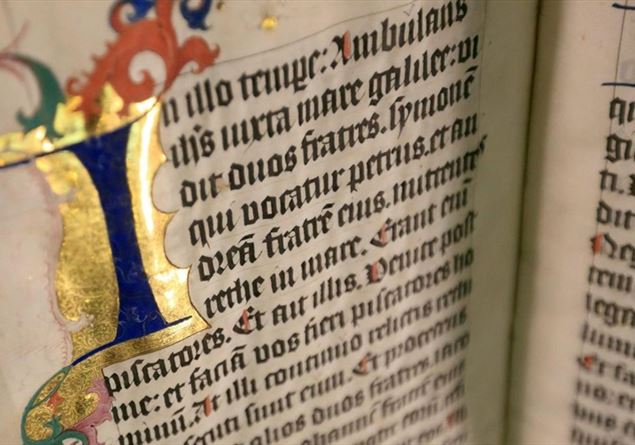 In illo tempe: Ambulans
ih̄s iuxta mare galilee: vi
dit duos fratres. symonē
qui vocatur petrus. et an
dreā fratrē eius. mittentes
rethe in mare. Erant em̄
piscatores. Et ait illis. Venite post
me: et faciā vos fieri piscatores ho
minū. At illi continuo relictis rethi
secuti sunt eum. Et procedens
alios duos fratres. iaco
fratrē
qu
gi
ti.
dit
tem